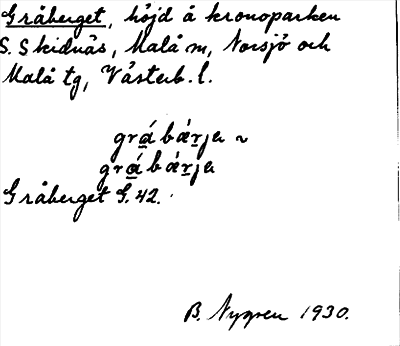 Gråberget, höjd å kronoparken
S. Skidnäs, Malå m, Norsjö och
Malå tg, Västerb. l.
grábärje ~
grábärje
Gråberget G. 42.
B. Nygren 1930.